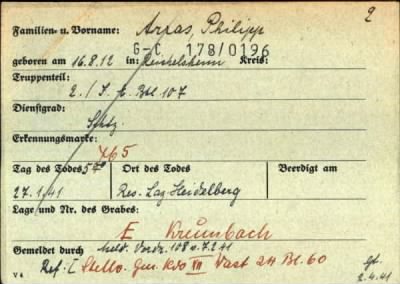 2
Familien- u. Vorname: Arras, Philipp
G-C 178/0196
geboren am 16.8.12 in: Reichelsheim Kreis:
Truppenteil:
2./ J. E. Btl. 107
Dienstgrad:
Schtz.
Erkennungsmarke:
465
Tag des Todes Ort des Todes Beerdigt am
27.1.41 Res. Laz. Heidelberg
Lage und Nr. des Grabes:
E Krumbach
Gemeldet durch Meld. Vordr. 108 v. 7.2.41
Ref: I Stellv. Gen. Kdo XII Vast 24 Bl. 60
2.4.41
V 4